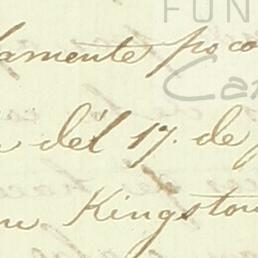 FUN
lamente poco
Can
del 17. de
Kingston